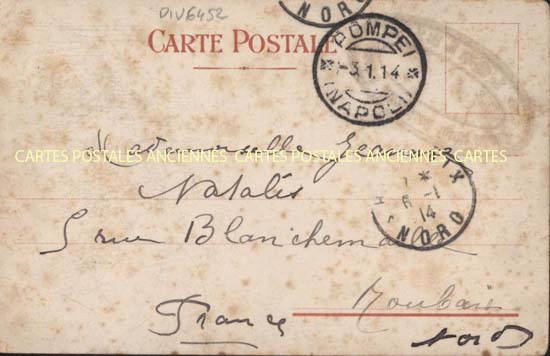 DIV6452
NORD
CARTE POSTALE
POMPEI
-3.1.14
(NAPOLI)
Mademoiselle
CARTES POSTALES ANCIENNES CARTES POSTALES ANCIENNES CARTES
Natalis
IX
8 -1
14
NORD
5 rue Blanchemaille
Roubaix
France
Nord